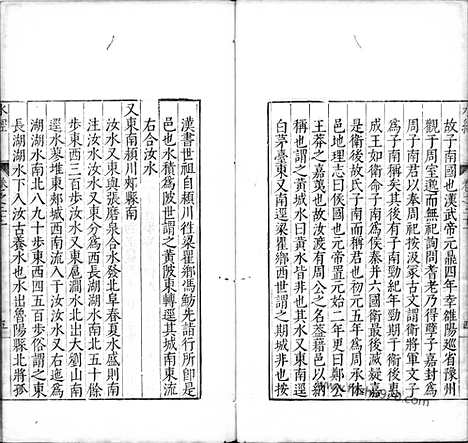 故子南國也漢武帝元鼎四年幸雒陽巡省豫州
觀于周室邈而無祀詢問耆老乃得孽子嘉封為
周子南君以奉周祀按汲冢古文謂衛將軍文子
為子南彌牟其後有子南勁紀年勁朝于魏後惠
成王如衛命子南為侯秦并六國衛最後滅疑嘉
是衛後故氏子南而稱君也初元五年為周承休
邑地理志曰侯國也元帝置元始二年更曰鄭公
王莽之嘉美也故汝水有周公之名蓋藉邑以
稱也謂之黃城水非也汝水又東南逕
白茅臺東又南逕梁瞿鄉西世謂之期城非也按
漢書世祖自潁川往梁瞿鄉馮魴先詣行所即是
邑也水積為陂世謂之黃陂東轉逕其城南東流
右合汝水
又東南潁川郟縣南
汝水又東與張磨泉合水發北阜春夏水盛則南
注汝水汝水又東分為西長湖湖水南北五十餘
步東西三百步汝水又東扈澗水北出大劉山南
逕木蓼堆東郟城西南流入于汝汝水又右迤為
湖湖水南北八九十步東西四五百步俗謂之東
長湖湖水下入汝古養水也水出魯陽縣北將孤